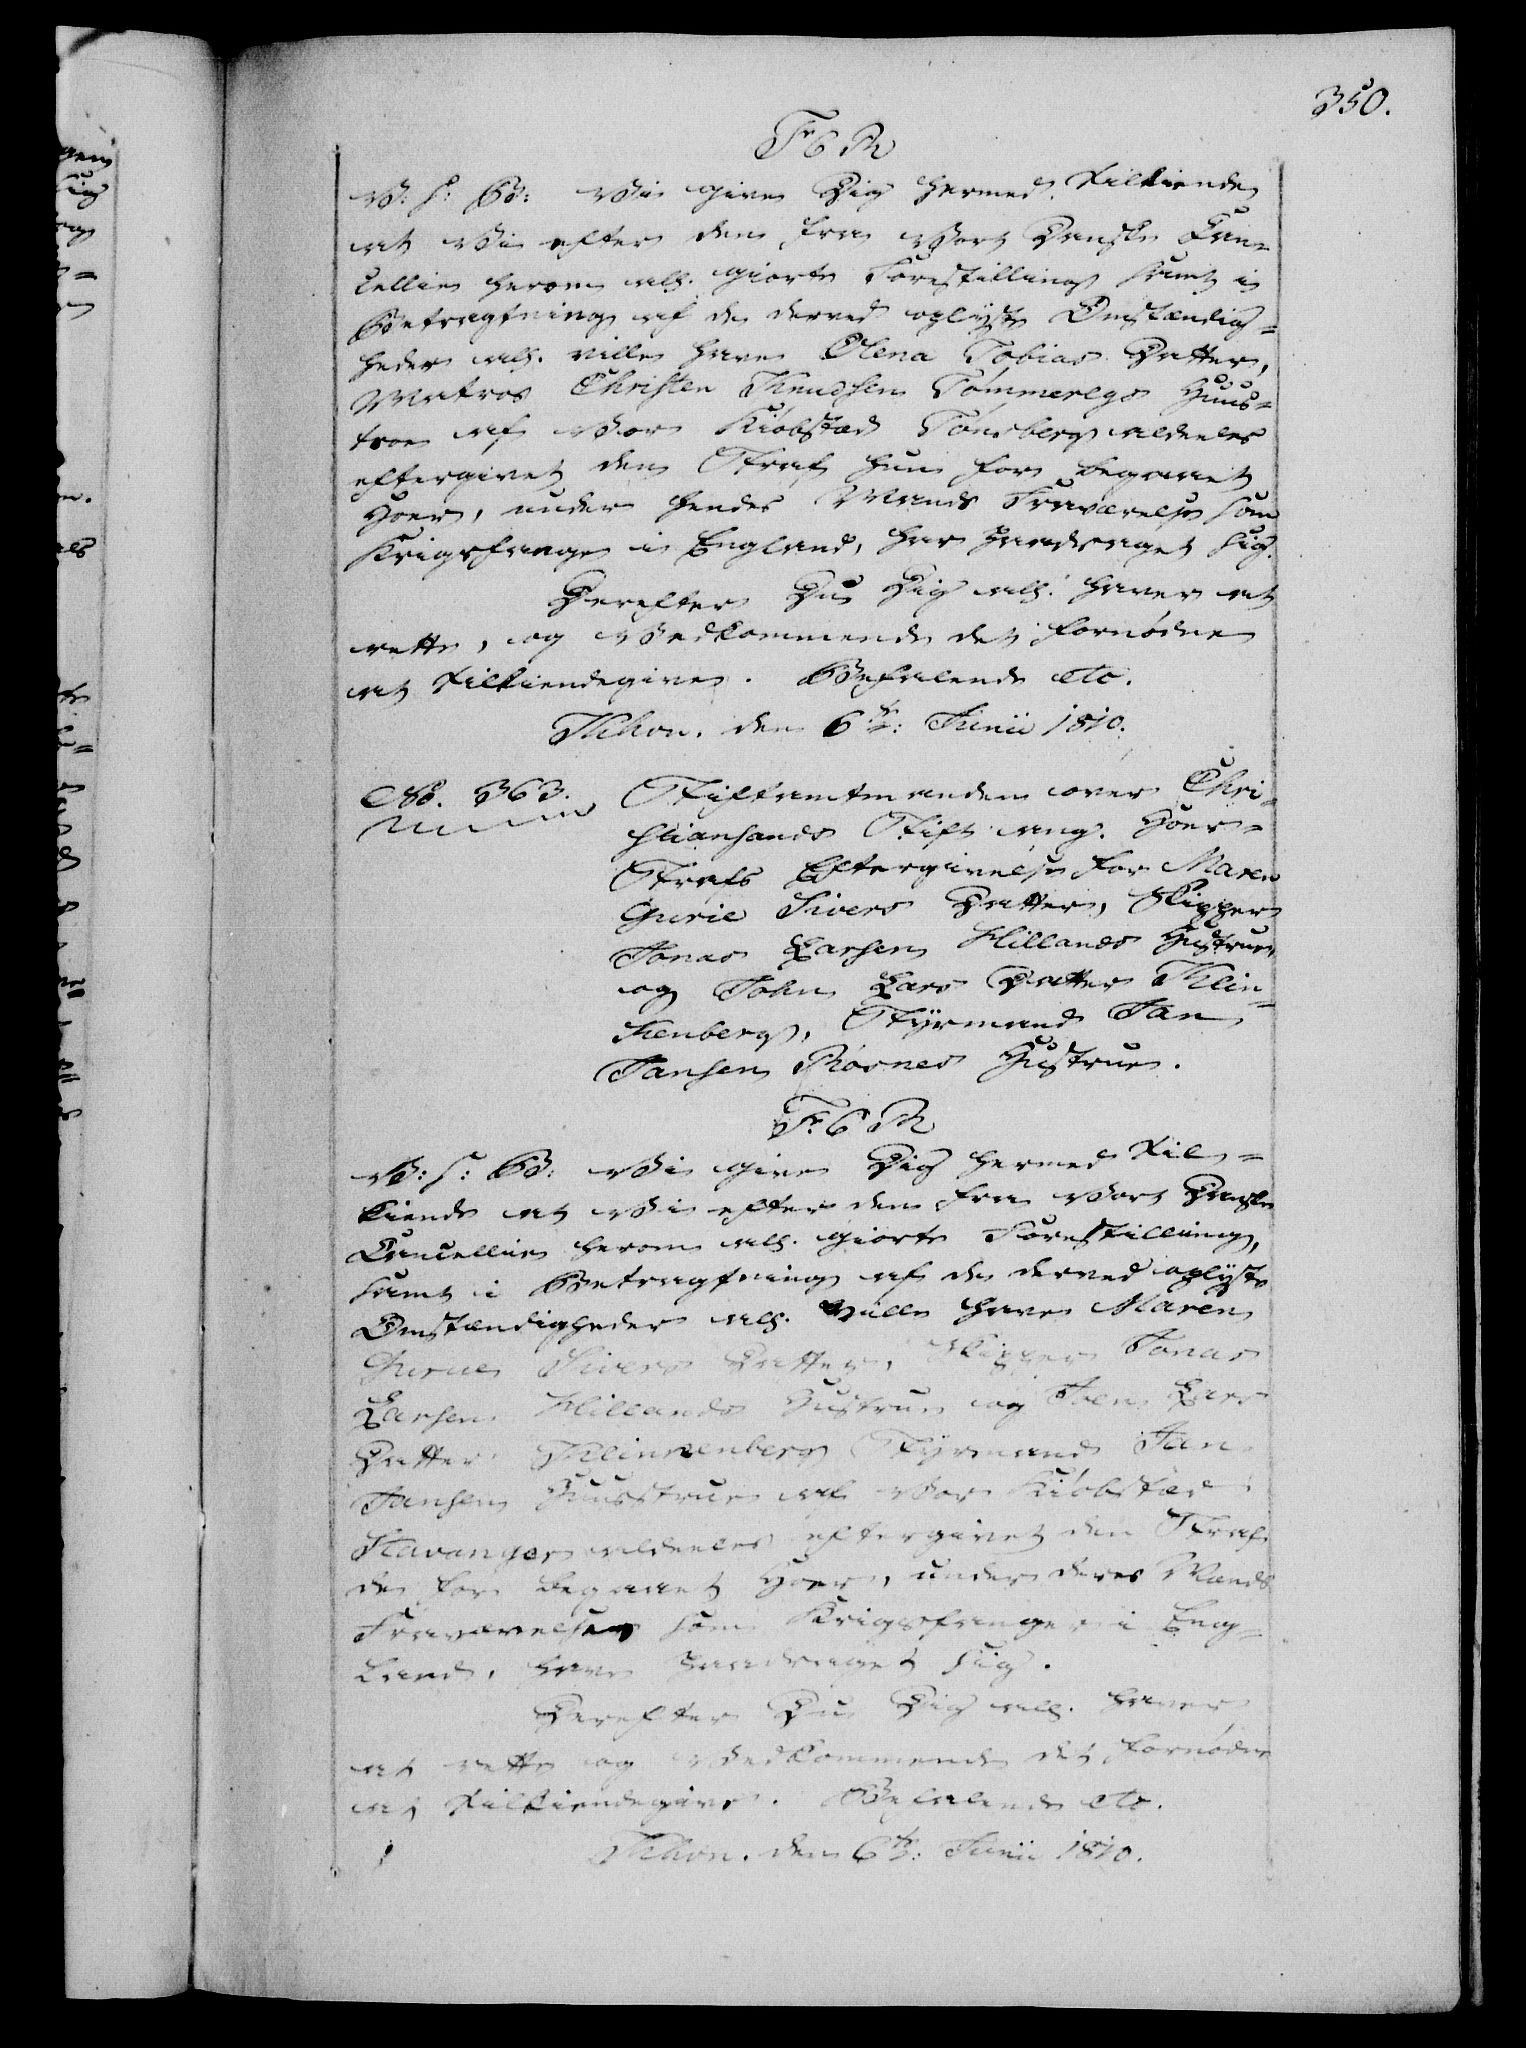 350.
Fr 6 R
V: S: G: Vi give Dig hermed Tilkiende
at Vi efter den fra Vort Danske Can¬
cellie herom all. giorte Forestilling samt i
Betragtning af de derved oplyste Omstændig=
heder all. ville have Olena Tobias Datter,
Matros Christen Knudsen Tømmerlgs Huus=
troe af Vor Kiøbstæd Tønsberg aldeeles
eftergivet den Straf hun for begaaet
Hoer, under hendes Mands Fraværelse som
Krigsfange i England, har paadraget sig.
Derefter Du Dig all. haver at
rette, og Vedkommende det fornødne
at tilkiendegive. Befalende etc.
Khavn. den 6te: Junii 1810.
No. 363. Stiftamtmanden over Chri¬
stiansands Stift ang. Hoer=
Strafs Eftergivelse for Maren
Gurie Sivers Datter, Skipper
Jonas Larsen Hillands Hustrue
og John Lars Datter Klin¬
kenberg, Styrmand Jan
Jansen Rosnes Hustrue.
Fr. 6 R
V: S: G: Vi give Dig hermed Til=
kiende at Vi efter den fra Vort Danske
Cancellie herom all. giorte Forestilling,
samt i Betragtning af de derved oplyste
Omstændigheder all. ville have Maren
Gurie Sivers Datter, Skipper Jonas
Larsen Hillands Hustrue og Lars
Datter Klinkenberg Styrmand Jan
Jansen Huustrue af Vor Kiøbstæd
Stavanger aldeeles eftergivet den Straf
de for begaaet Hoer, under deres Mænds
Fraværelser som Krigsfanger i Eng¬
land, have paadraget sig.
Derefter Du Dig all. haver
at rette og Vedkommende det fornødne
at tilkiendegive. Befalende etc.
Khavn. den 6te: Junii 1810.